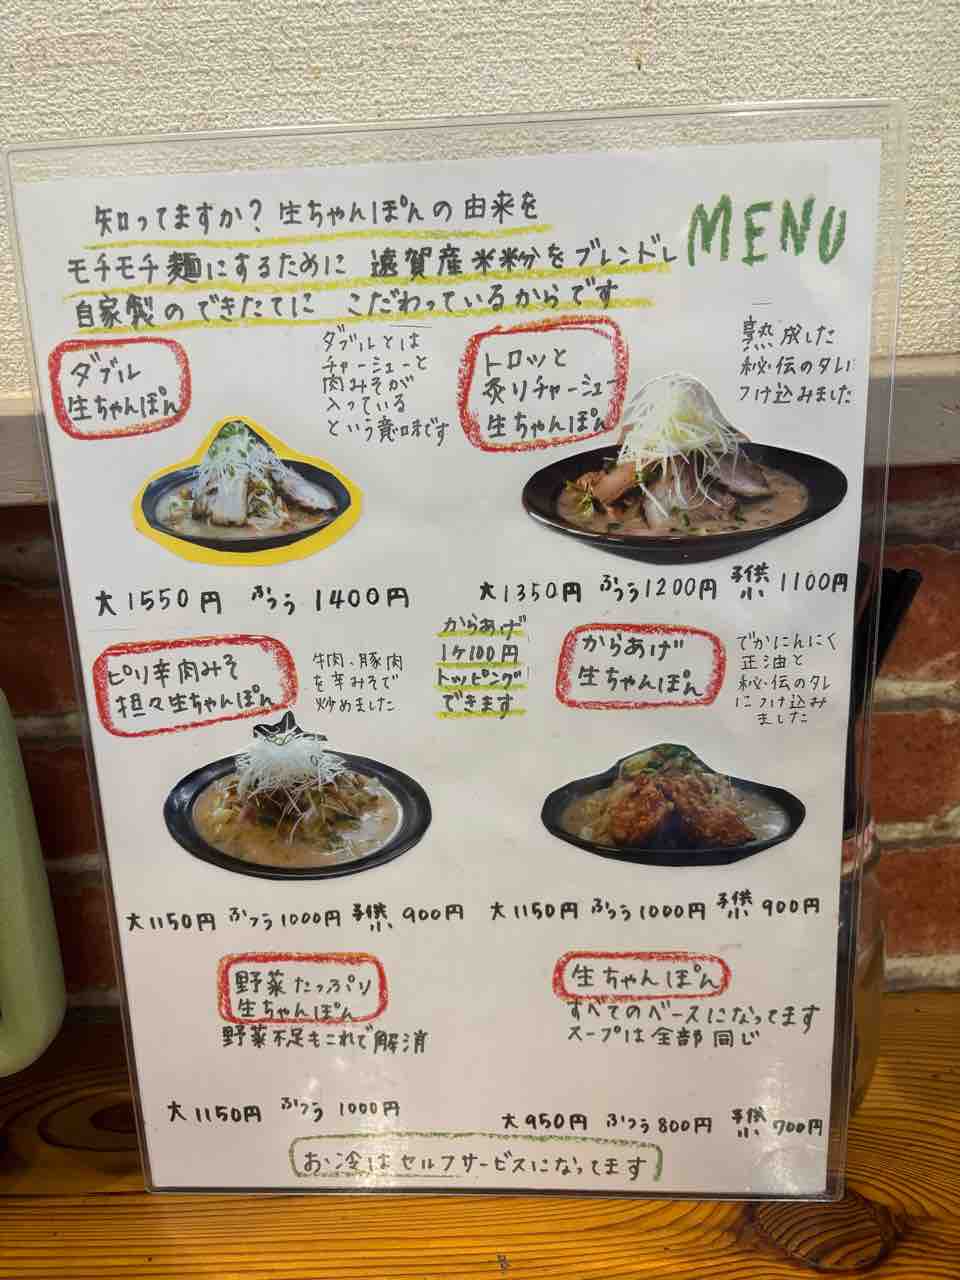 知ってますか？生ちゃんぽんの由来を
モチモチ麺にするために 遠賀産米粉分をブレンドし
自家製のできたてに こだわっているからです
MENU
ダブル
生ちゃんぽん
ダブルとは
チャーシューと
肉みそが
入っている
という意味です
大1550円 ふつう1400円
トロッと
炙りチャーシュー
生ちゃんぽん
熟成した
秘伝のタレ
つけ込みました
大1350円 ふつう1200円 子供 1100円
ピリ辛肉みそ
担々生ちゃんぽん
牛肉、豚肉
を辛みそで
炒めました
大1150円 ふつう1000円 子供 900円
からあげ
1ケ100円
トッピング
できます
からあげ
生ちゃんぽん
でかにんにく
正油と
秘伝のタレ
につけ込み
ました
大1150円 ふつう1000円 子供 900円
野菜たっぷり
生ちゃんぽん
野菜不足もこれで解消
大1150円 ふつう1000円
生ちゃんぽん
すべてのベースになってます
スープは全部同じ
大950円 ふつう800円 子供 700円
お冷はセルフサービスになってます